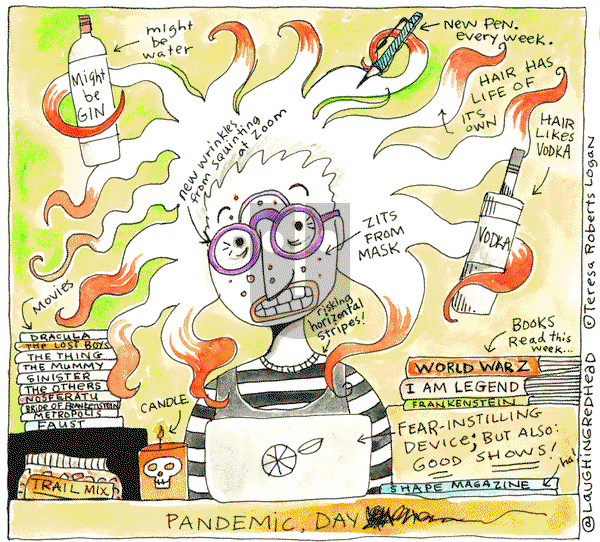 might
be
water
Might
be
GIN
NEW PEN.
every week.
HAIR HAS
LIFE OF
ITS
OWN
HAIR
LIKES
VODKA
VODKA
new wrinkles
from squinting
at Zoom
ZITS
FROM
MASK
risking
horizontal
stripes!
MOVIES
DRACULA
THE LOST BOYS
THE THING
THE MUMMY
SINISTER
THE OTHERS
NOSFERATU
BRIDE OF FRANKENSTEIN
METROPOLIS
FAUST
TRAIL MIX
CANDLE
BOOKS
Read this
week...
WORLD WAR Z
I AM LEGEND
FRANKENSTEIN
FEAR-INSTILLING
DEVICE; BUT ALSO:
GOOD SHOWS!
ha!
SHAPE MAGAZINE
PANDEMIC, DAY
@LAUGHINGREDHEAD ©Teresa Roberts Logan